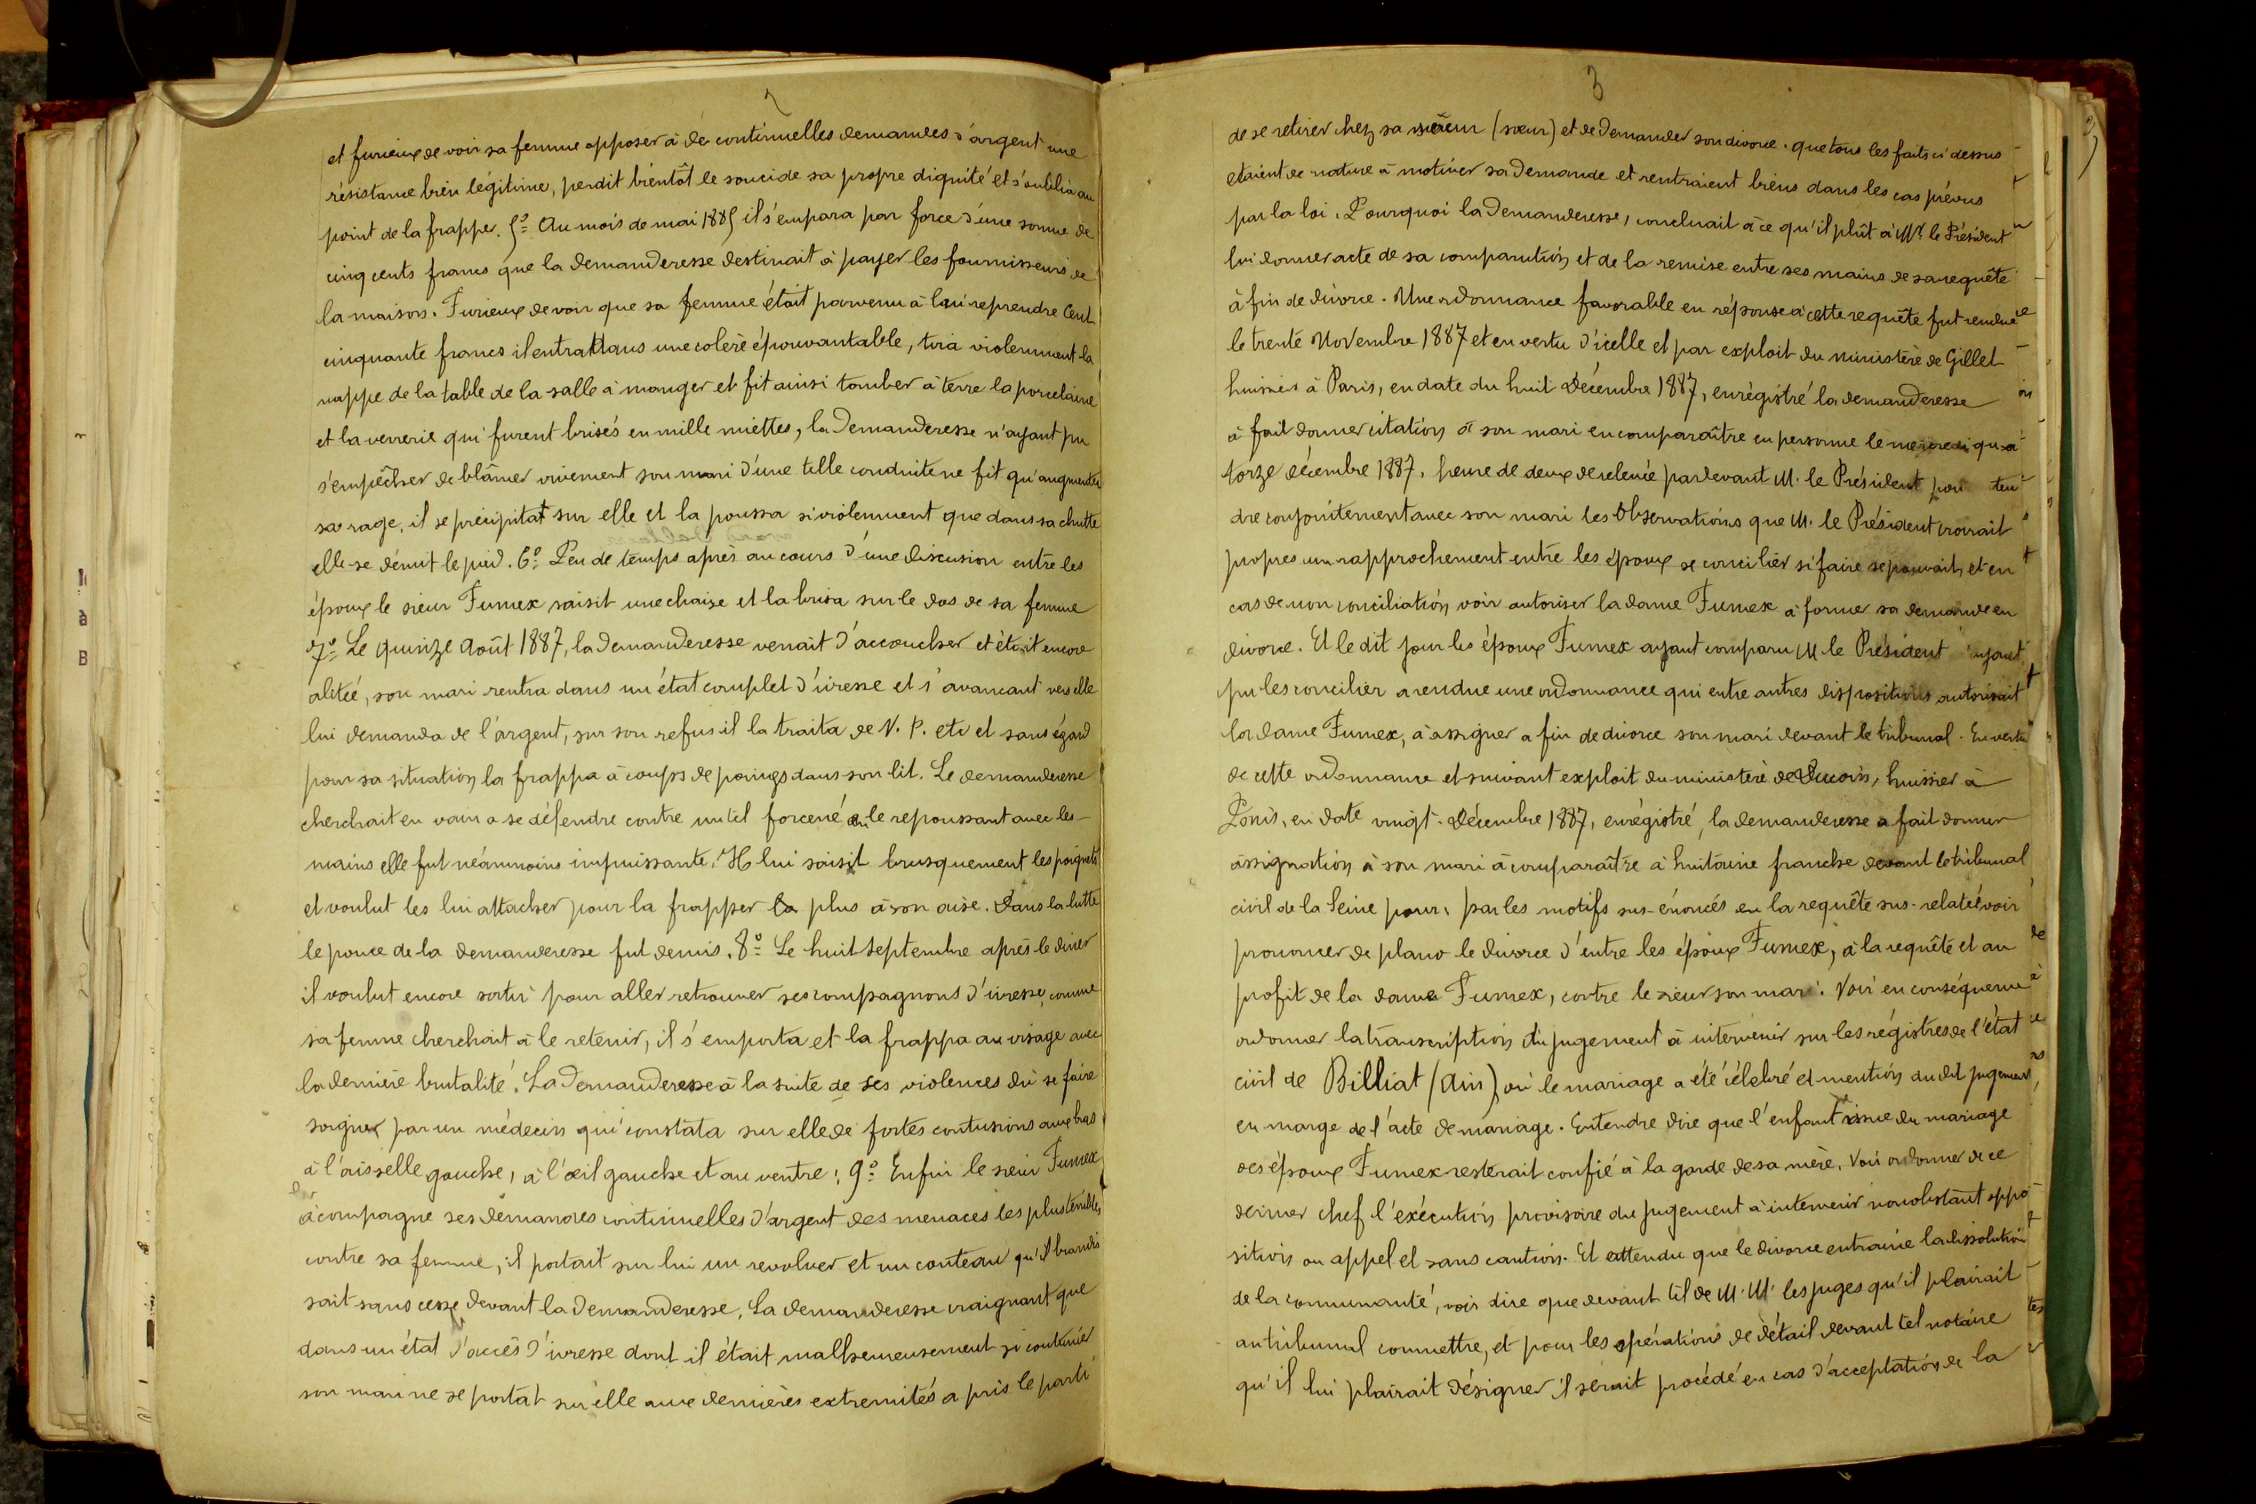 2
et furieux de voir sa femme opposer à de continuelles demandes d'argent une
résistance bien légitime, perdit bientôt le souci de sa propre dignité et s'oublia au
point de la frappe. 5º Au mois de mai 1885 il s'empara par force d'une somme de
cinq cents francs que la demanderesse destinait à payer les fournisseurs de
la maison. Furieux de voir que sa femme était parvenu à lui reprendre Cent
cinquante francs il entra dans une colère épouvantable, tira violemment la
nappe de la table de la salle à manger et fit ainsi tomber à terre la porcelaine
et la verrerie qui furent brisés en mille miettes, la Demanderesse n'ayant pu
s'empêcher de blâmer vivement son mari d'une telle conduite ne fit qu'augmenter
sa rage, il se précipitat sur elle et la poussa si violemment que dans sa chutte
elle se démit le pied. 6º Peu de temps après au cours d'une discusion entre les
époux le sieur Fumex saisit une chaise et la brisa sur le dos de sa femme
7º Le quinze Août 1887, la demanderesse venait d'accoucher et était encore
alitée, son mari rentra dans un état complet d'ivresse et s'avancant vers elle
lui demanda de l'argent, sur son refus il la traita de V. P. etc et sans égard
pour sa situation la frappa à coups de poings dans son lit. Le demanderesse
cherchait en vain a se défendre contre un tel forcené en le repoussant avec les
mains elle fut néanmoins impuissante. Il lui saisit brusquement les poignets
et voulut les lui attacher pour la frapper plus à son aise. Dans la lutte
le pouce de la demanderesse fut demis. 8º Le huit Septembre après le diner
il voulut encore sortir pour aller retrouver ses compagnons d'ivresse, comme
sa femme cherchait à le retenir, il s'emporta et la frappa au visage avec
la dernière brutalité. La Demanderesse à la suite de ses violences dû se faire
soigner par un médecin qui constata sur elle de fortes contusions aux bras
à l'aisselle gauche, à l'œil gauche et au ventre; 9º Enfin le sieur Fumex
acompagne ses demandes continuelles d'argent des menaces les plus terribles
contre sa femme, il portait sur lui un revolver et un couteau qu'il brandis
sait sans cesse devant la Demanderesse. La demanderesse craignant que
dans un état d'accès d'ivresse dont il était malheureusement si coutumier
son mari ne se portât sur elle aux dernières extremités a pris le parti
3
de se retirer chez sa sœur (sœur) et de Demander son divorce. que tous les faits ci dessus
etaient de nature à motiver sa Demande et rentraient biens dans les cas prévus
par la loi. Pourquoi la Demanderesse, concluait à ce qu'il plût à Mr. le Président
lui donner acte de sa comparution et de la remise entre ses mains de sa requête
à fin de divorce. Une ordonnance favorable en réponse à cette requête fut rendue
le trente Novembre 1887 et en vertu d'icelle et par exploit du ministère de Gillet
huissier à Paris, en date du huit Décembre 1887, enrégistré la demanderesse
à fait donner citation à son mari en comparaître en personne le mercredi qua-
torze décembre 1887, heure de deux de relevée pardevant M. le Président pour ten
dre conjointement avec son mari les Observations que M. le Président croirait
propres un rapprochement entre les époux se concilier si faire se pouvait, et en
cas de non conciliation voir autoriser la dame Fumex à former sa demande en
divorce. Et le dit jour les époux Fumex ayant comparu M le Président ayant
pu les concilier a rendue une ordonnance qui entre autres dispositions autorisait
la dame Fumex, à assigner a fin de divorce son mari devant le tribunal. En vertu
de cette ordonnance et suivant exploit du ministère de huissier à
Paris, en date vingt-Décembre 1887, enrégistré, la demanderesse a fait donner
assignation à son mari à comparaître à huitaine franche devant le tribunal
civil de la Seine pour, par les motifs sus-énoncés en la requête sus-relatée voir
prononcer de plano le divorce d'entre les époux Fumex, à la requête et au
profit de la dame Fumex, contre le sieur son mari. Voir en conséquence
ordonner la transcription du jugement à intervenir sur les régistres de l'état
civil de Billiat (Ain) où le mariage a été célébré et mention du dit jugement
en marge de l'acte de mariage. Entendre dire que l'enfant issue du mariage
des époux Fumex resterait confié à la garde de sa mère. Voir ordonner de ce
dernier chef l'exécution provisoire du jugement à intervenir nonobstant oppo
sition ou appel et sans caution. Et attendu que le divorce entraine la dissolution
de la communauté, voir dire que devant tel de M. M. les juges qu'il plairait
au tribunal commettre, et pour les opérations de détail devant tel notaire
qu'il lui plairait désigner il serait procédé en cas d'acceptation de la